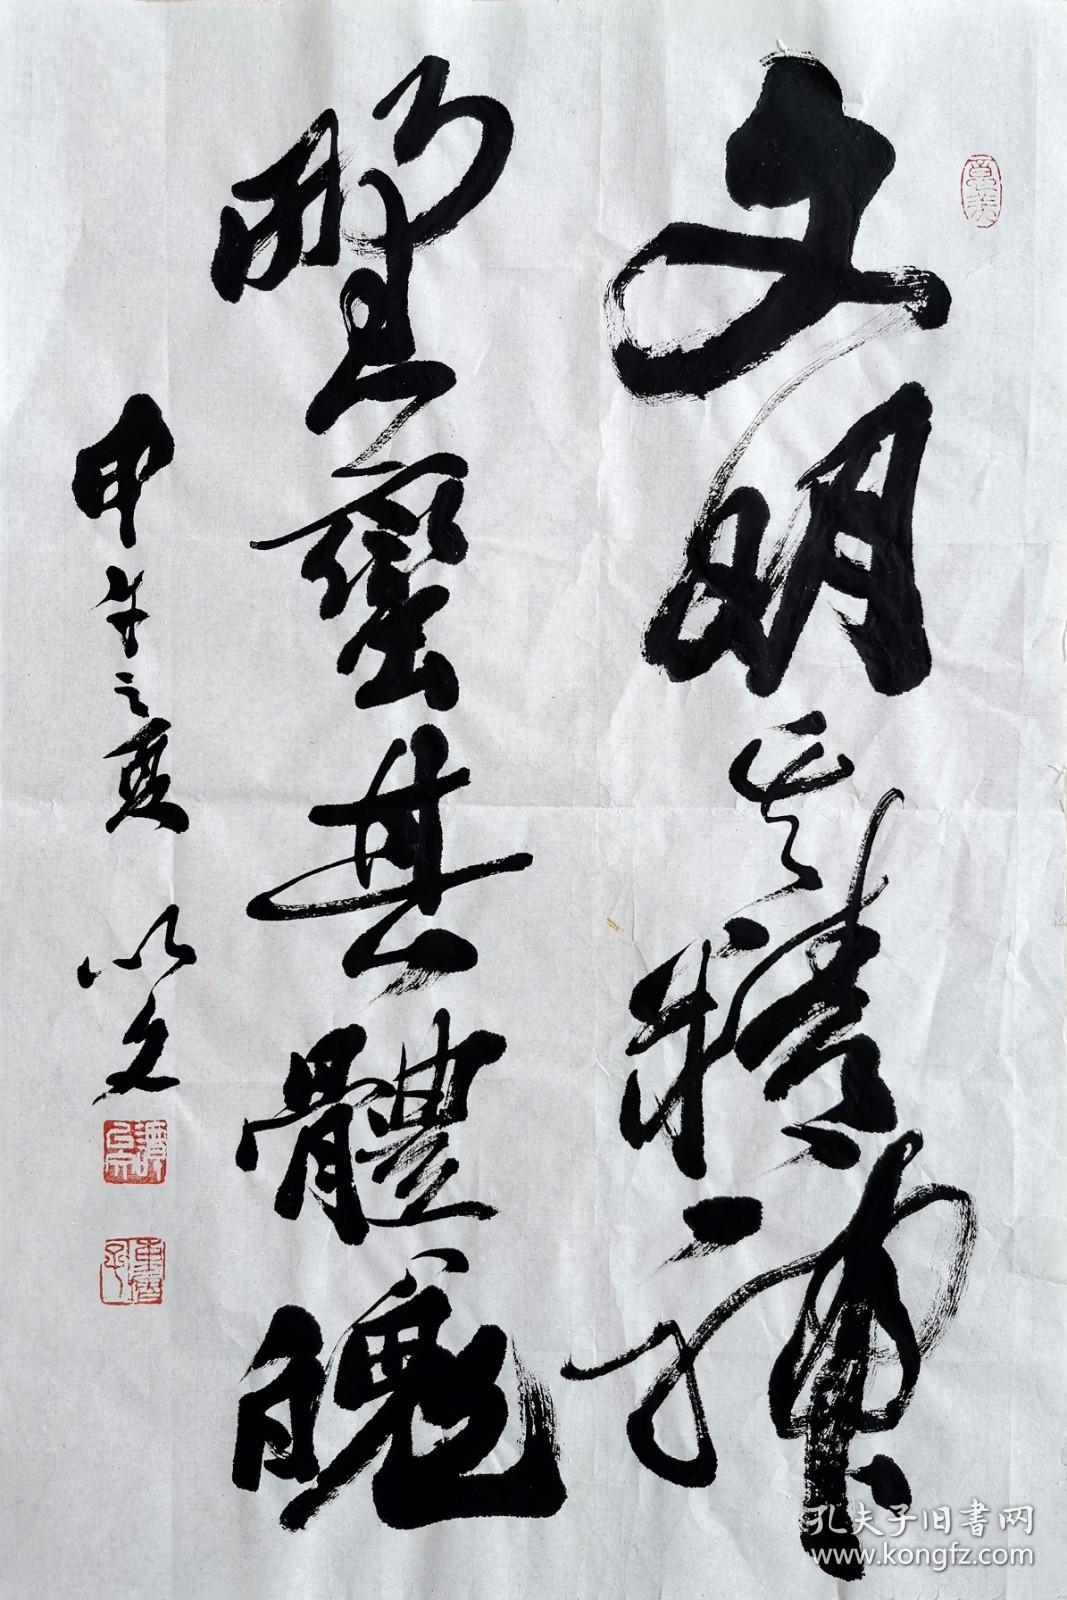 文明其精神
野蠻其體魄
甲午之夏 以文
孔夫子旧书网
www.kongfz.com